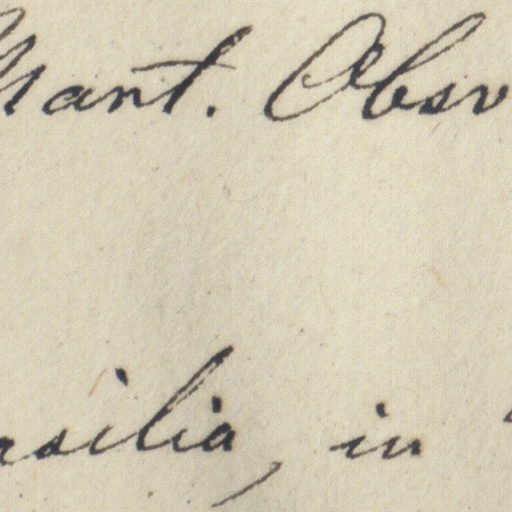 Mant. Obsv
asilia, in